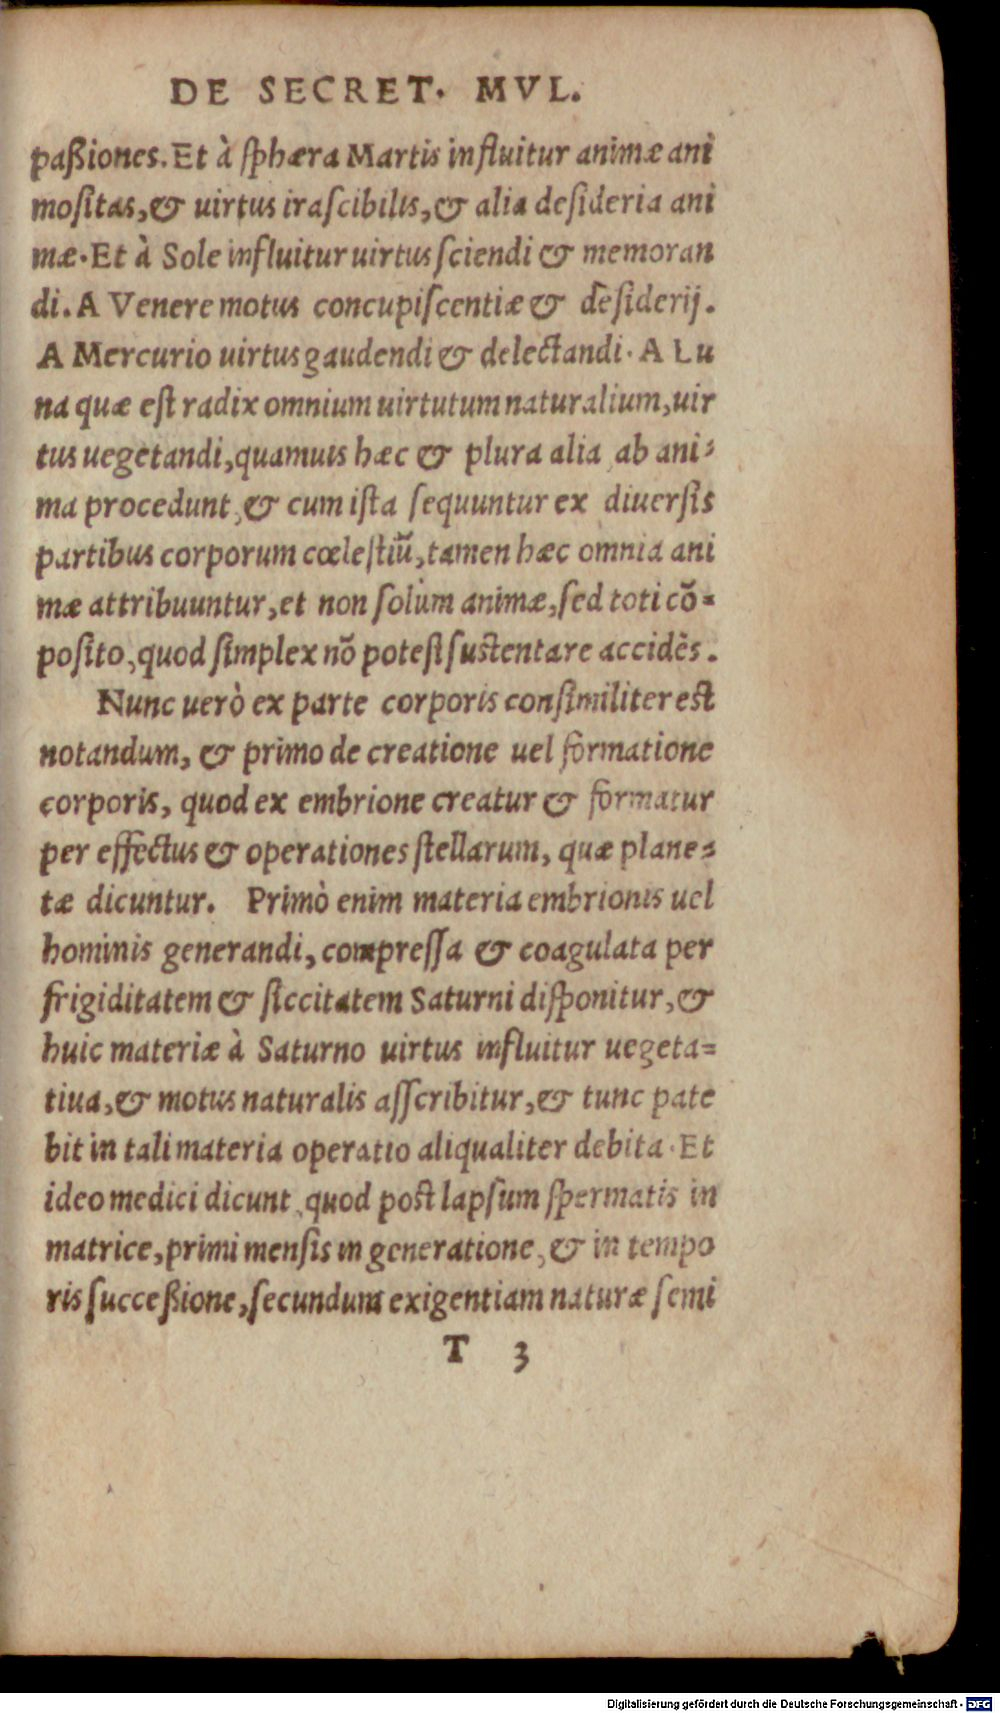 DE SECRET. MVL.
paßiones. Et à ſphæra Martis influitur animæ ani
moſitas, & uirtus iraſcibilis, & alia deſideria ani
mæ. Et à Sole influitur uirtus ſciendi & memoran
di. A Venere motus concupiſcentiæ & deſiderij.
A Mercurio uirtus gaudendi & delectandi. A Lu
na quæ eſt radix omnium uirtutum naturalium, uir
tus uegetandi, quamuis hæc & plura alia ab ani⸗
ma procedunt, & cum iſta ſequuntur ex diuerſis
partibus corporum cœleſtiū, tamen hæc omnia ani
mæ attribuuntur, et non ſolùm animæ, ſed toti cō⸗
poſito, quod ſimplex nō poteſt ſuſtentare accidēs.
Nunc uerò ex parte corporis conſimiliter eſt
notandum, & primo de creatione uel formatione
corporis, quod ex embrione creatur & formatur
per effectus & operationes ſtellarum, quæ plane⸗
tæ dicuntur. Primò enim materia embrionis uel
hominis generandi, compreſſa & coagulata per
frigiditatem & ſiccitatem Saturni diſponitur, &
huic materiæ à Saturno uirtus influitur uegeta⸗
tiua, & motus naturalis aſſcribitur, & tunc pate
bit in tali materia operatio aliqualiter debita. Et
ideo medici dicunt, quod poſt lapſum ſpermatis in
matrice, primi menſis in generatione, & in tempo
ris ſucceßione, ſecundum exigentiam naturæ ſemi
T 3
Digitalisierung gefördert durch die Deutsche Forschungsgemeinschaft - DFG